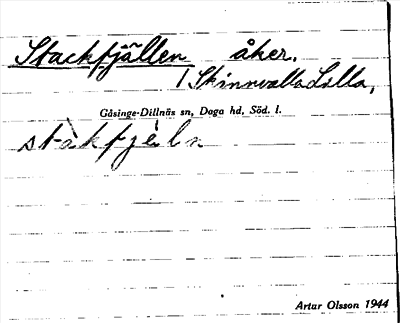 Stackfjällen åker.
/ Skinnvalla Lilla,
Gåsinge-Dillnäs sn, Daga hd, Söd. l.
stàkfjèln
Artur Olsson 1944